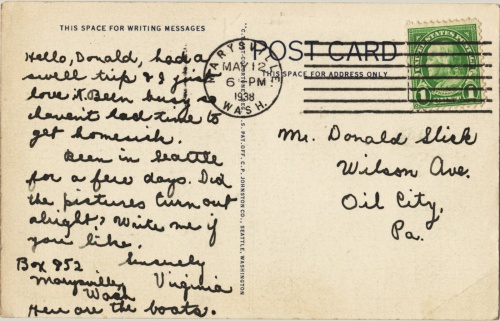 THIS SPACE FOR WRITING MESSAGES
Hello, Donald, had a
swell trip & I just
love it. Been busy so
haven't had time to
get homesick.
Been in Seattle
for a few days. Did
the pictures turn out
alright? Write me if
you like.
Sincerely
Virginia
Box 852
Marysville,
Wash
Here are the boats.
C. P. JOHNSTON CO., SEATTLE, WASHINGTON
MARYSVILLE,
MAY 12
6 PM
1938
WASH.
POST CARD
THIS SPACE FOR ADDRESS ONLY
UNITED STATES POSTAGE
1
1
Mr. Donald Slick
Wilson Ave.
Oil City,
Pa.